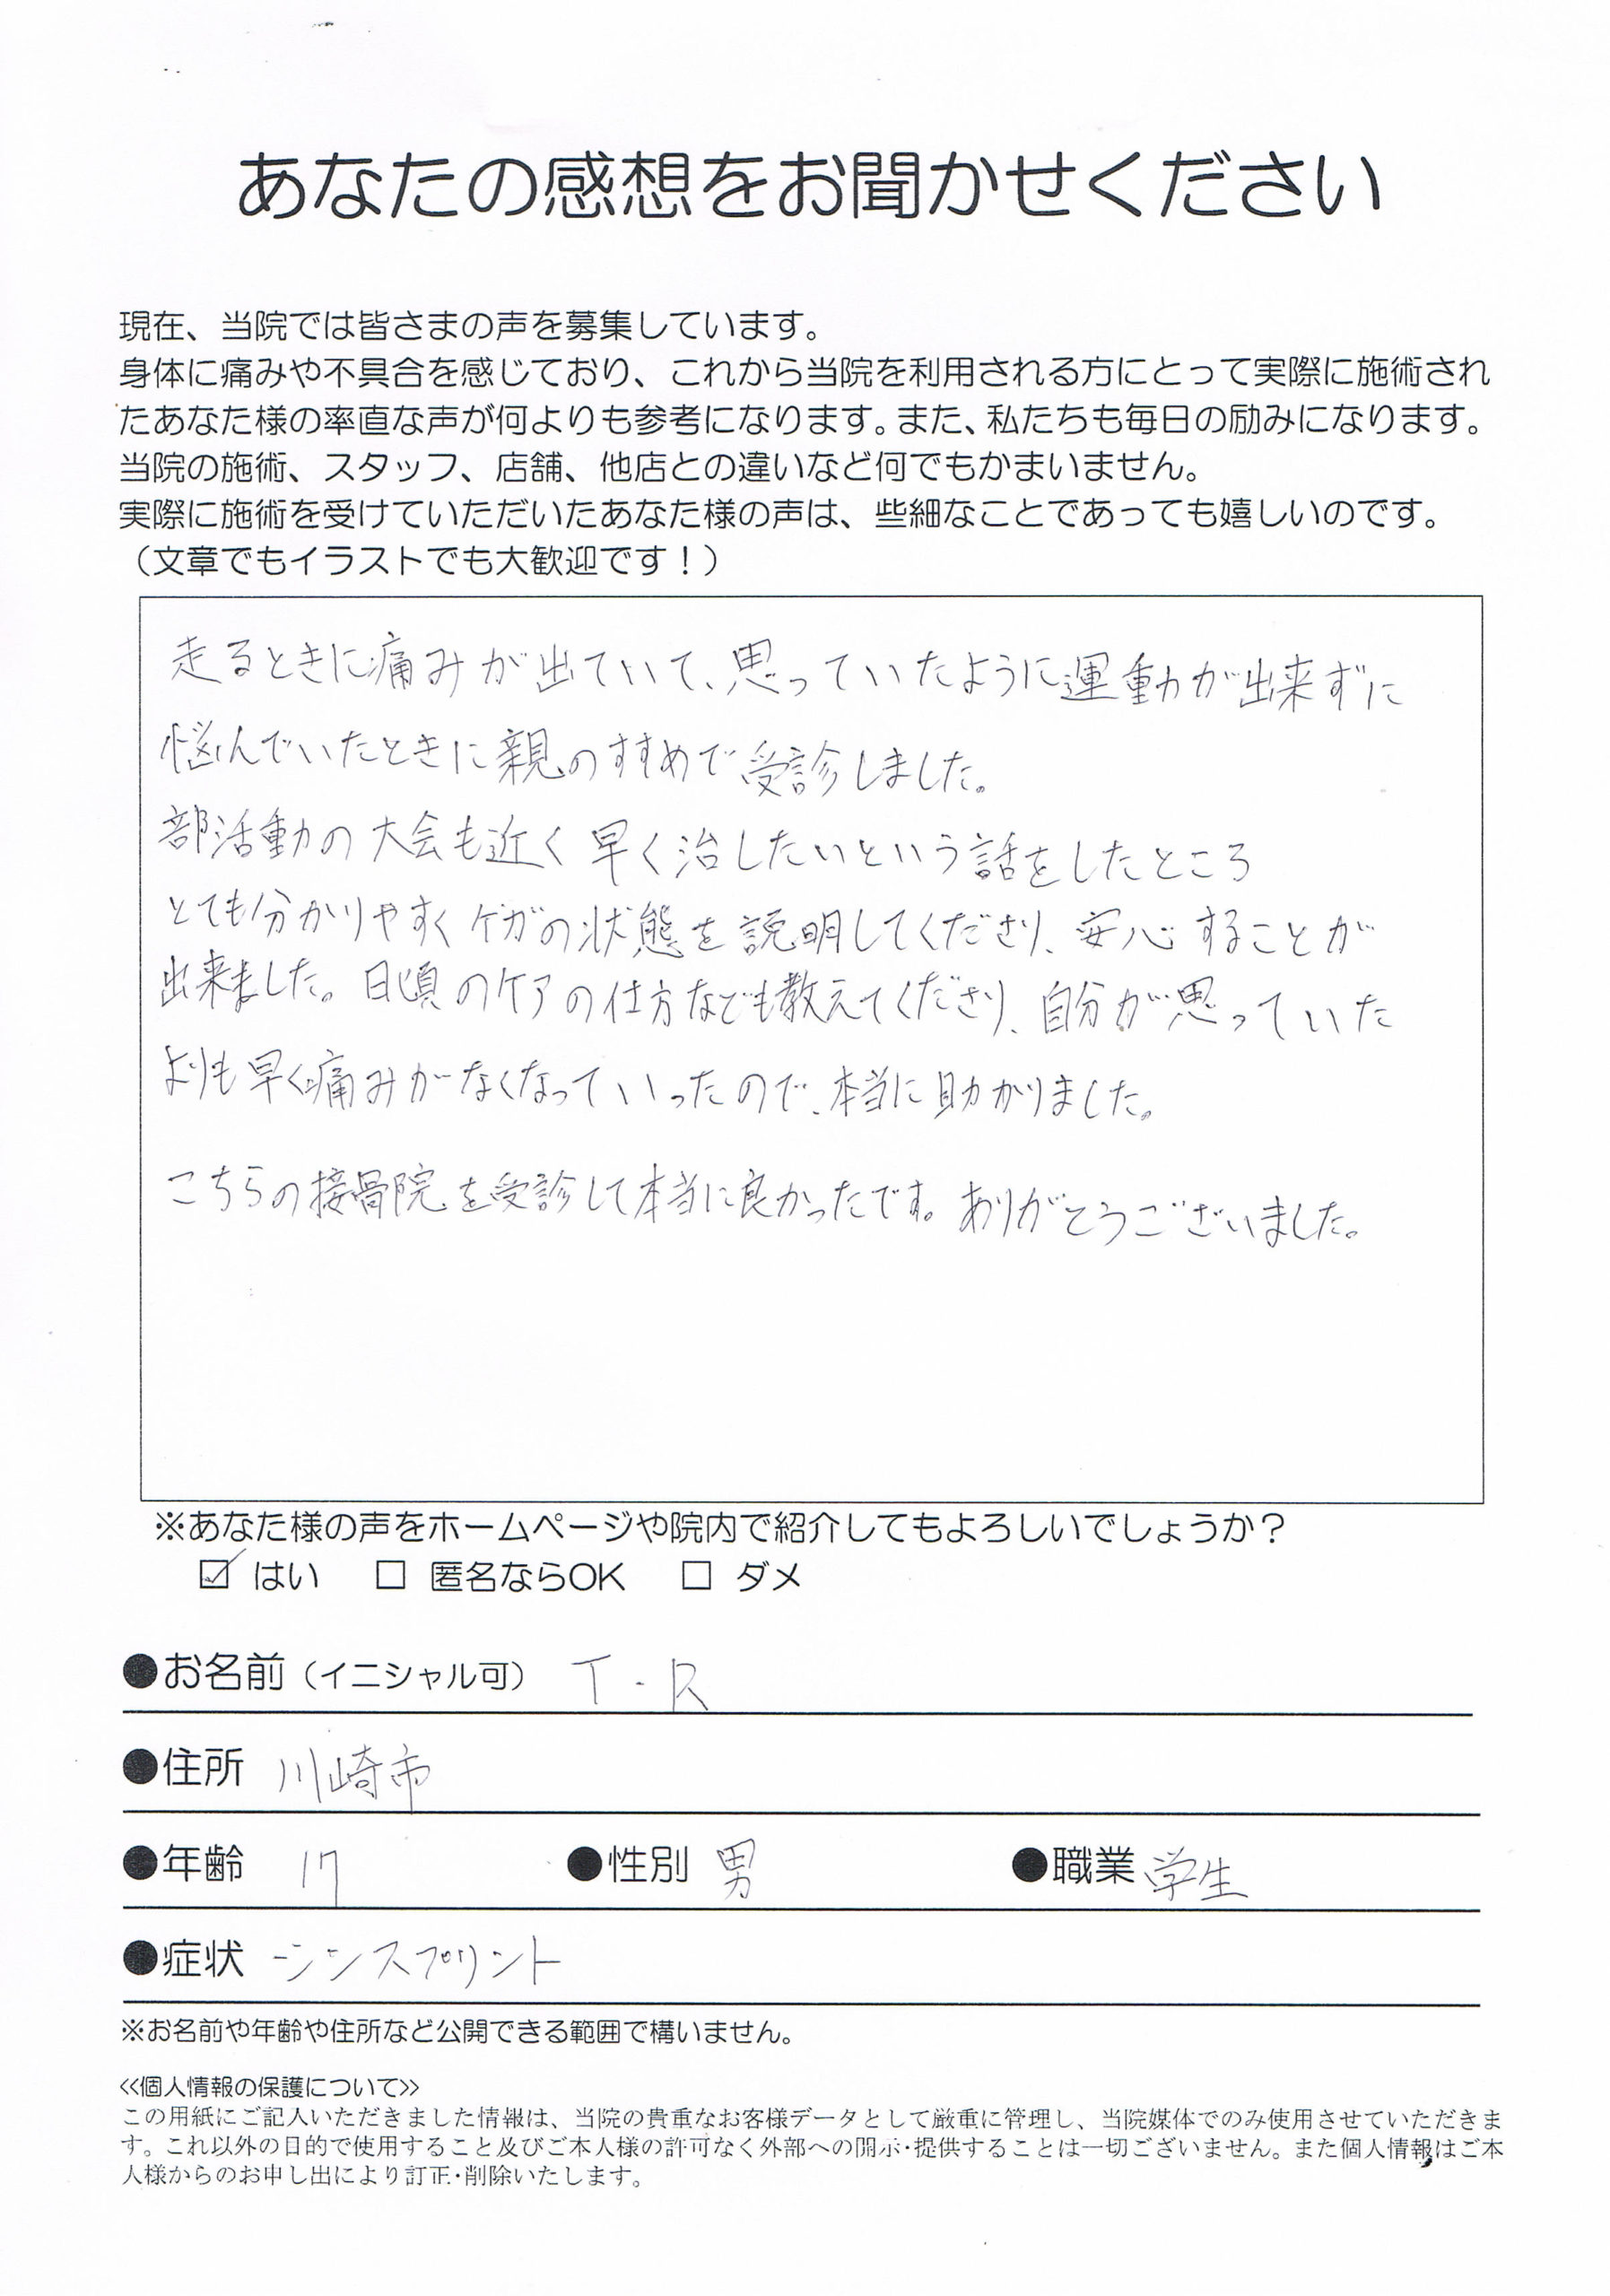 あなたの感想をお聞かせください
現在、当院では皆さまの声を募集しています。
身体に痛みや不具合を感じており、これから当院を利用される方にとって実際に施術され
たあなた様の率直な声が何よりも参考になります。また、私たちも毎日の励みになります。
当院の施術、スタッフ、店舗、他店との違いなど何でもかまいません。
実際に施術を受けていただいたあなた様の声は、些細なことであっても嬉しいのです。
（文章でもイラストでも大歓迎です！）
走るときに痛みが出ていて、思っていたように運動が出来ずに
悩んでいたときに親のすすめで受診しました。
部活動の大会も近く早く治したいという話をしたところ
とても分かりやすくケガの状態を説明してくださり、安心することが
出来ました。日頃のケアの仕方なども教えてくださり、自分が思っていた
よりも早く痛みがなくなっていったので、本当に助かりました。
こちらの接骨院を受診して本当に良かったです。ありがとうございました。
※あなた様の声をホームページや院内で紹介してもよろしいでしょうか？
☑ はい □ 匿名ならOK □ ダメ
●お名前（イニシャル可） T・R
●住所 川崎市
●年齢 17 ●性別 男 ●職業 学生
●症状 シンスプリント
※お名前や年齢や住所など公開できる範囲で構いません。
≪個人情報の保護について≫
この用紙にご記入いただきました情報は、当院の貴重なお客様データとして厳重に管理し、当院媒体でのみ使用させていただきま
す。これ以外の目的で使用すること及びご本人様の許可なく外部への開示・提供することは一切ございません。また個人情報はご本
人様からのお申し出により訂正・削除いたします。